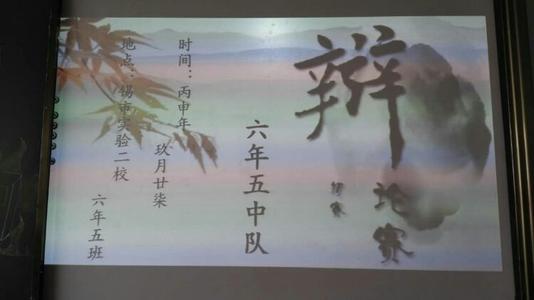 辩论赛
六年五中队
时间：丙申年
玖月廿柒
地点：锡市实验二校
六年五班